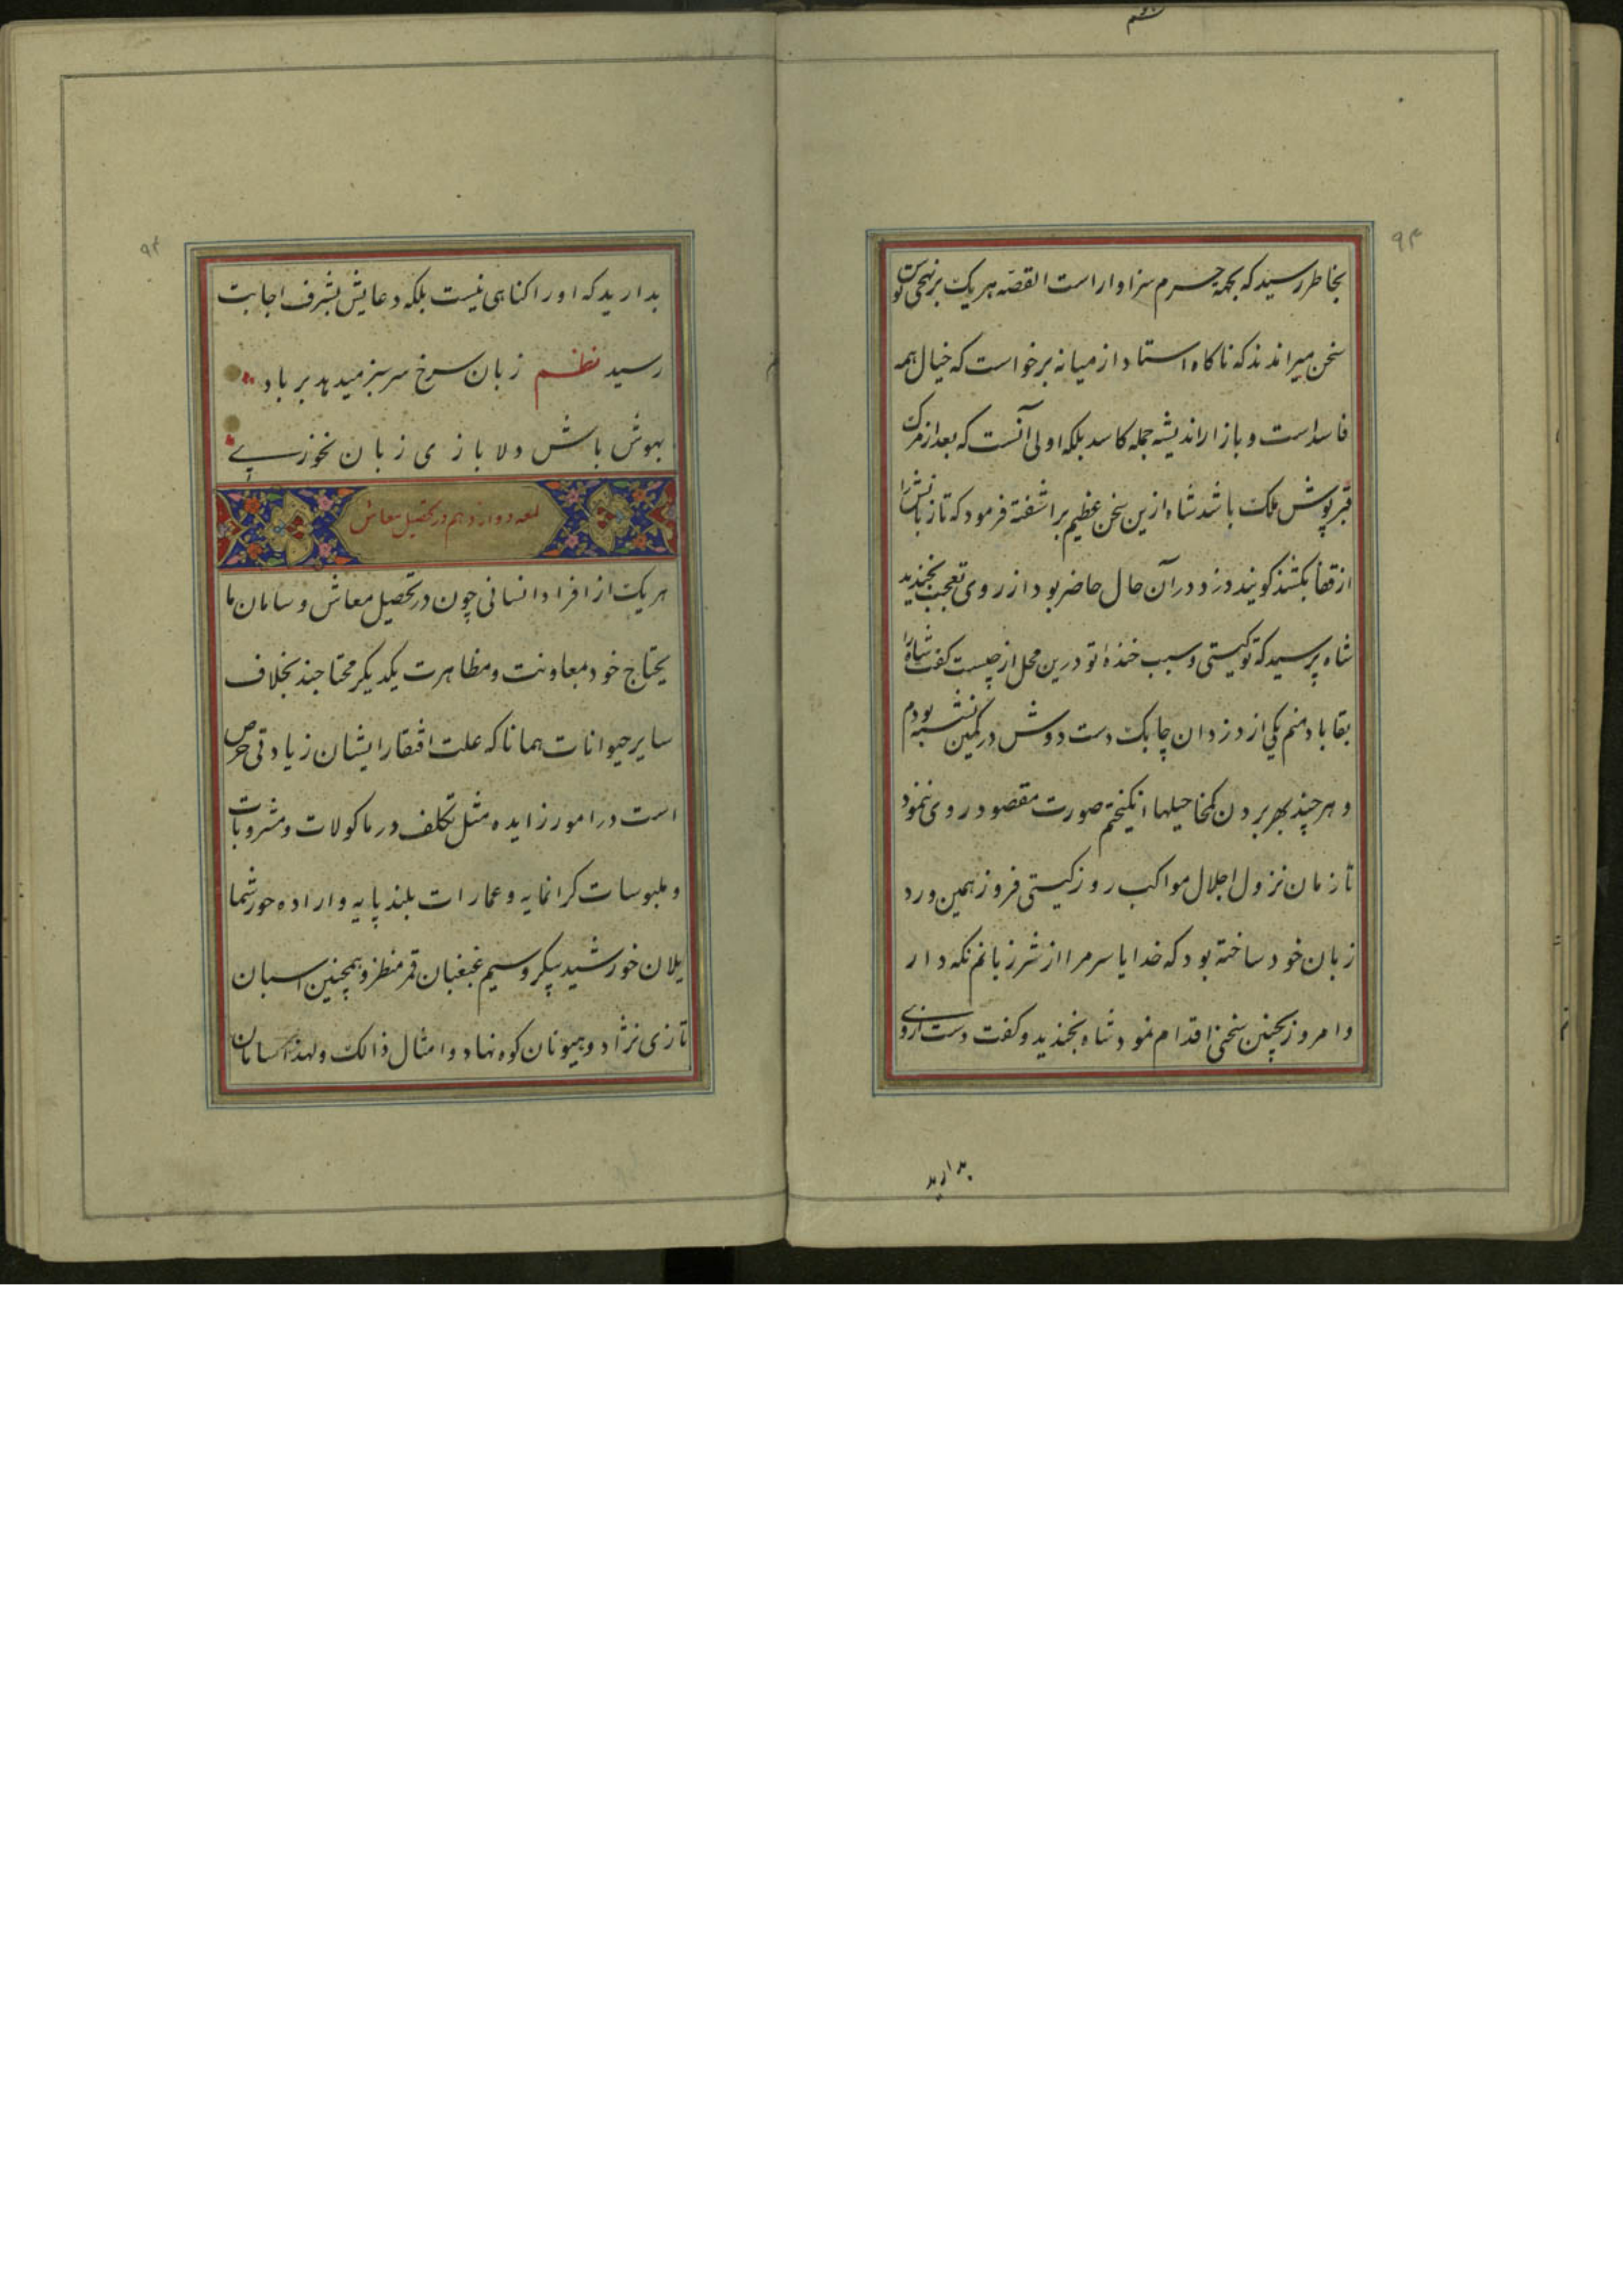 بخاطر رسید که بجهة حرم سزاوار است القصه هر یک بر نهجی توسن
سخن میراندند که ناکاه استاد از میانه برخواست که خیال همه
فاسد است و بازار اندیشه جمله کاسد بلکه اولی آنست که بعد از مرک
قبر پوش ملک باشد شاه ازین سخن عظیم براشفته فرمود که تا زبانش را
از قفا بکشند کویند دزد در آن حال حاضر بود از روی تعجب بخندید
شاه پرسید که تو کیستی و سبب خندهٔ تو درین محل از چیست کفت شاه را
بقا باد منم یکی از دزدان چابک دست دوش در کمین نشسته بودم
و هر چند بهر بردن کمخا حیلها انکیختم صورت مقصود روی ننمود
تا زمان نزول اجلال مواکب روز کیتی فروز همین ورد
زبان خود ساخته بود که خدایا سر مرا از شر زبانم نکه دار
و امروز بچنین سخنی اقدام نمود شاه بخندید و کفت دست از وی
بدارید
بدارید که او را کناهی نیست بلکه دعایش بشرف اجابت
رسید نظم زبان سرخ سر سبز میدهد بر باد
بهوش باش دلا بازی زبان نخوری
لمعه دوازدهم در تحصیل معاش
هر یک از افراد انسانی چون در تحصیل معاش و سامان ما
یحتاج خود بمعاونت و مظاهرت یکدیکر محتاجند بخلاف
سایر حیوانات همانا که علت افتقار ایشان زیادتی حرص
است در امور زایده مثل تکلف در ماکولات و مشروبات
و ملبوسات کرانمایه و عمارات بلند پایه و اراده حور شما
یلان خورشید پیکر و سیم غبغبان قمر منظر و همچنین اسبان
تازی نژاد و هیونان کوه نهاد و امثال ذالک و لهذا کسانان